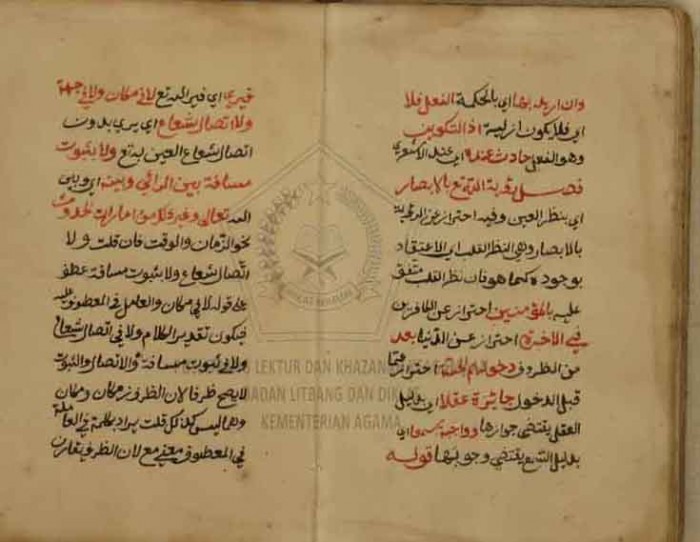 وان اريد بها اي بالحكمة الفعل فلا
اي فلا يكون ازلية اذ التكوين
وهو الفعل حادث عنده اي عند الاشعري
فصل رؤية الله تع بالابصار
اي بنظر العين وفيه احتراز عن الرؤية
بالابصار وهي النظر القلب اي الاعتقاد
بوجوده كما هو فان نظر القلب متفق
عليه بالمؤمنين احتراز عن الكافرين
في الاخرة احتراز عن الدنيا بعد
من الظروف دخولهم الجنة احتراز عما
قبل الدخول جائزة عقلا اي بدليل
العقل يقتضي جوازها وواجبة سمعا اي
بدليل السمع يقتضي وجوبها قوله
فيرى اي فيرى الله تع لا في مكان ولا في جهة
ولا اتصال شعاع اي يرى بدون
اتصال شعاع العين به تع ولا بثبوت
مسافة بين الرائي وبينه اي وبين
الله تعالى وغير ذلك من امارات الحدوث
نحو الزمان والوقت فان قلت ولا
اتصال شعاع ولا بثبوت مسافة عطف
على قوله لا في مكان والعامل في المعطوف عليه
فيكون تقدير الكلام ولا في اتصال شعاع
ولا في ثبوت مسافة والاتصال والثبوت
لا يصح ظرفا لان الظرف زمكان ومكان
وهما ليس كذلك قلت يراد بكلمة في العاملة
في المعطوف معنى مع لان الظرف يقارن
LEKTUR DAN KHAZANAH
BADAN LITBANG DAN DIKLAT
KEMENTERIAN AGAMA